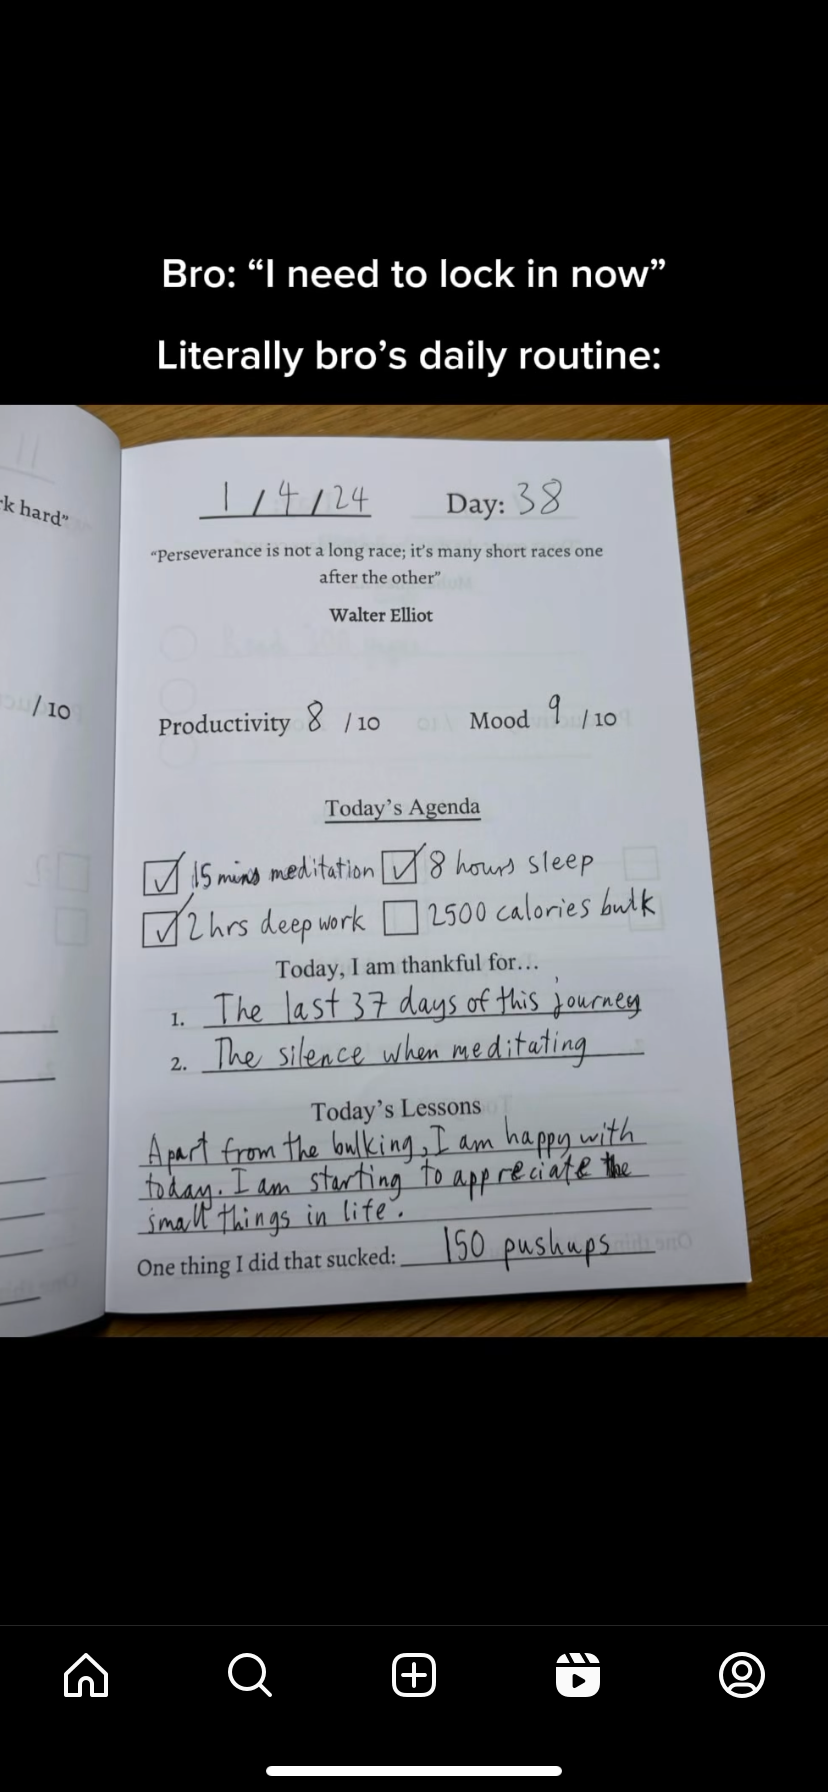 Bro: “I need to lock in now”
Literally bro’s daily routine:
rk hard”
/10
1/4/24 Day: 38
“Perseverance is not a long race; it’s many short races one
after the other”
Walter Elliot
Productivity 8 /10 Mood 9 /10
Today’s Agenda
15 mins meditation 8 hours sleep
2hrs deep work 2500 calories bulk
Today, I am thankful for...
1. The last 37 days of this journey
2. The silence when meditating
Today’s Lessons
Apart from the bulking, I am happy with
today. I am starting to appreciate the
small things in life.
One thing I did that sucked: 150 pushups